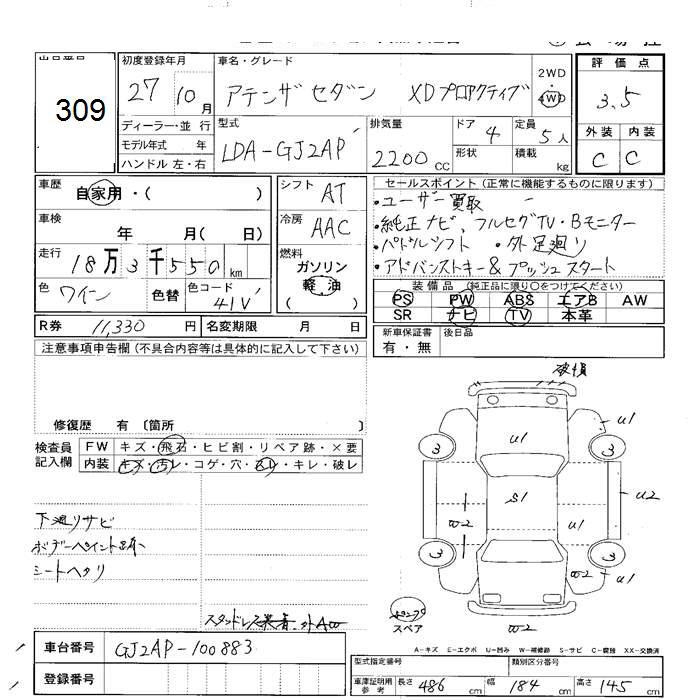 出品番号
309
初度登録年月
27
10月
ディーラー・並 行
モデル年式 年
ハンドル 左・右
車名・グレード
アテンザ セダン XD プロアクティブ
2WD
4WD
型式
LDA-GJ2AP
排気量
2200 CC
ドア 4
形状
定員 5人
積載 kg
評 価 点
3.5
外装 内装
C C
車歴
自家用・( )
車検
年 月( 日)
走行
18万3千550km
色 ワイン 色替 色コード 41V
R券 11,330円 名変期限 月 日
シフト AT
冷房 AAC
燃料
ガソリン
軽 油
( )
セールスポイント(正常に機能するものに限ります)
・ユーザー買取
・純正ナビ、フルセグTV・Bモニター
・パドルシフト ・外 足廻り
・アドバンストキー & プッシュスタート
装 備 品 (純正品に限り○をつけてください)
PS PW ABS エアB AW
SR ナビ TV 本革
新車保証書
有・無
後日品
注意事項申告欄(不具合内容等は具体的に記入して下さい)
修復歴 有〔箇所 〕
検査員
記入欄
FW キズ・飛石・ヒビ割・リペア跡・×要
内装 キズ・汚レ・コゲ・穴・スレ・キレ・破レ
下廻りサビ
ボデーペイント
シートヘタリ
破損
u1
u1
3
3
S1
u2
w2
u1
3
3
w2
u1
w2
スペア
車台番号 GJ2AP-100883
登録番号
A-キズ E-エクボ U-凹み W-補修跡 S-サビ C-腐蝕 XX-交換済
型式指定番号
類別区分番号
車庫証明用
参考
長さ 486cm 幅 184cm 高さ 145cm